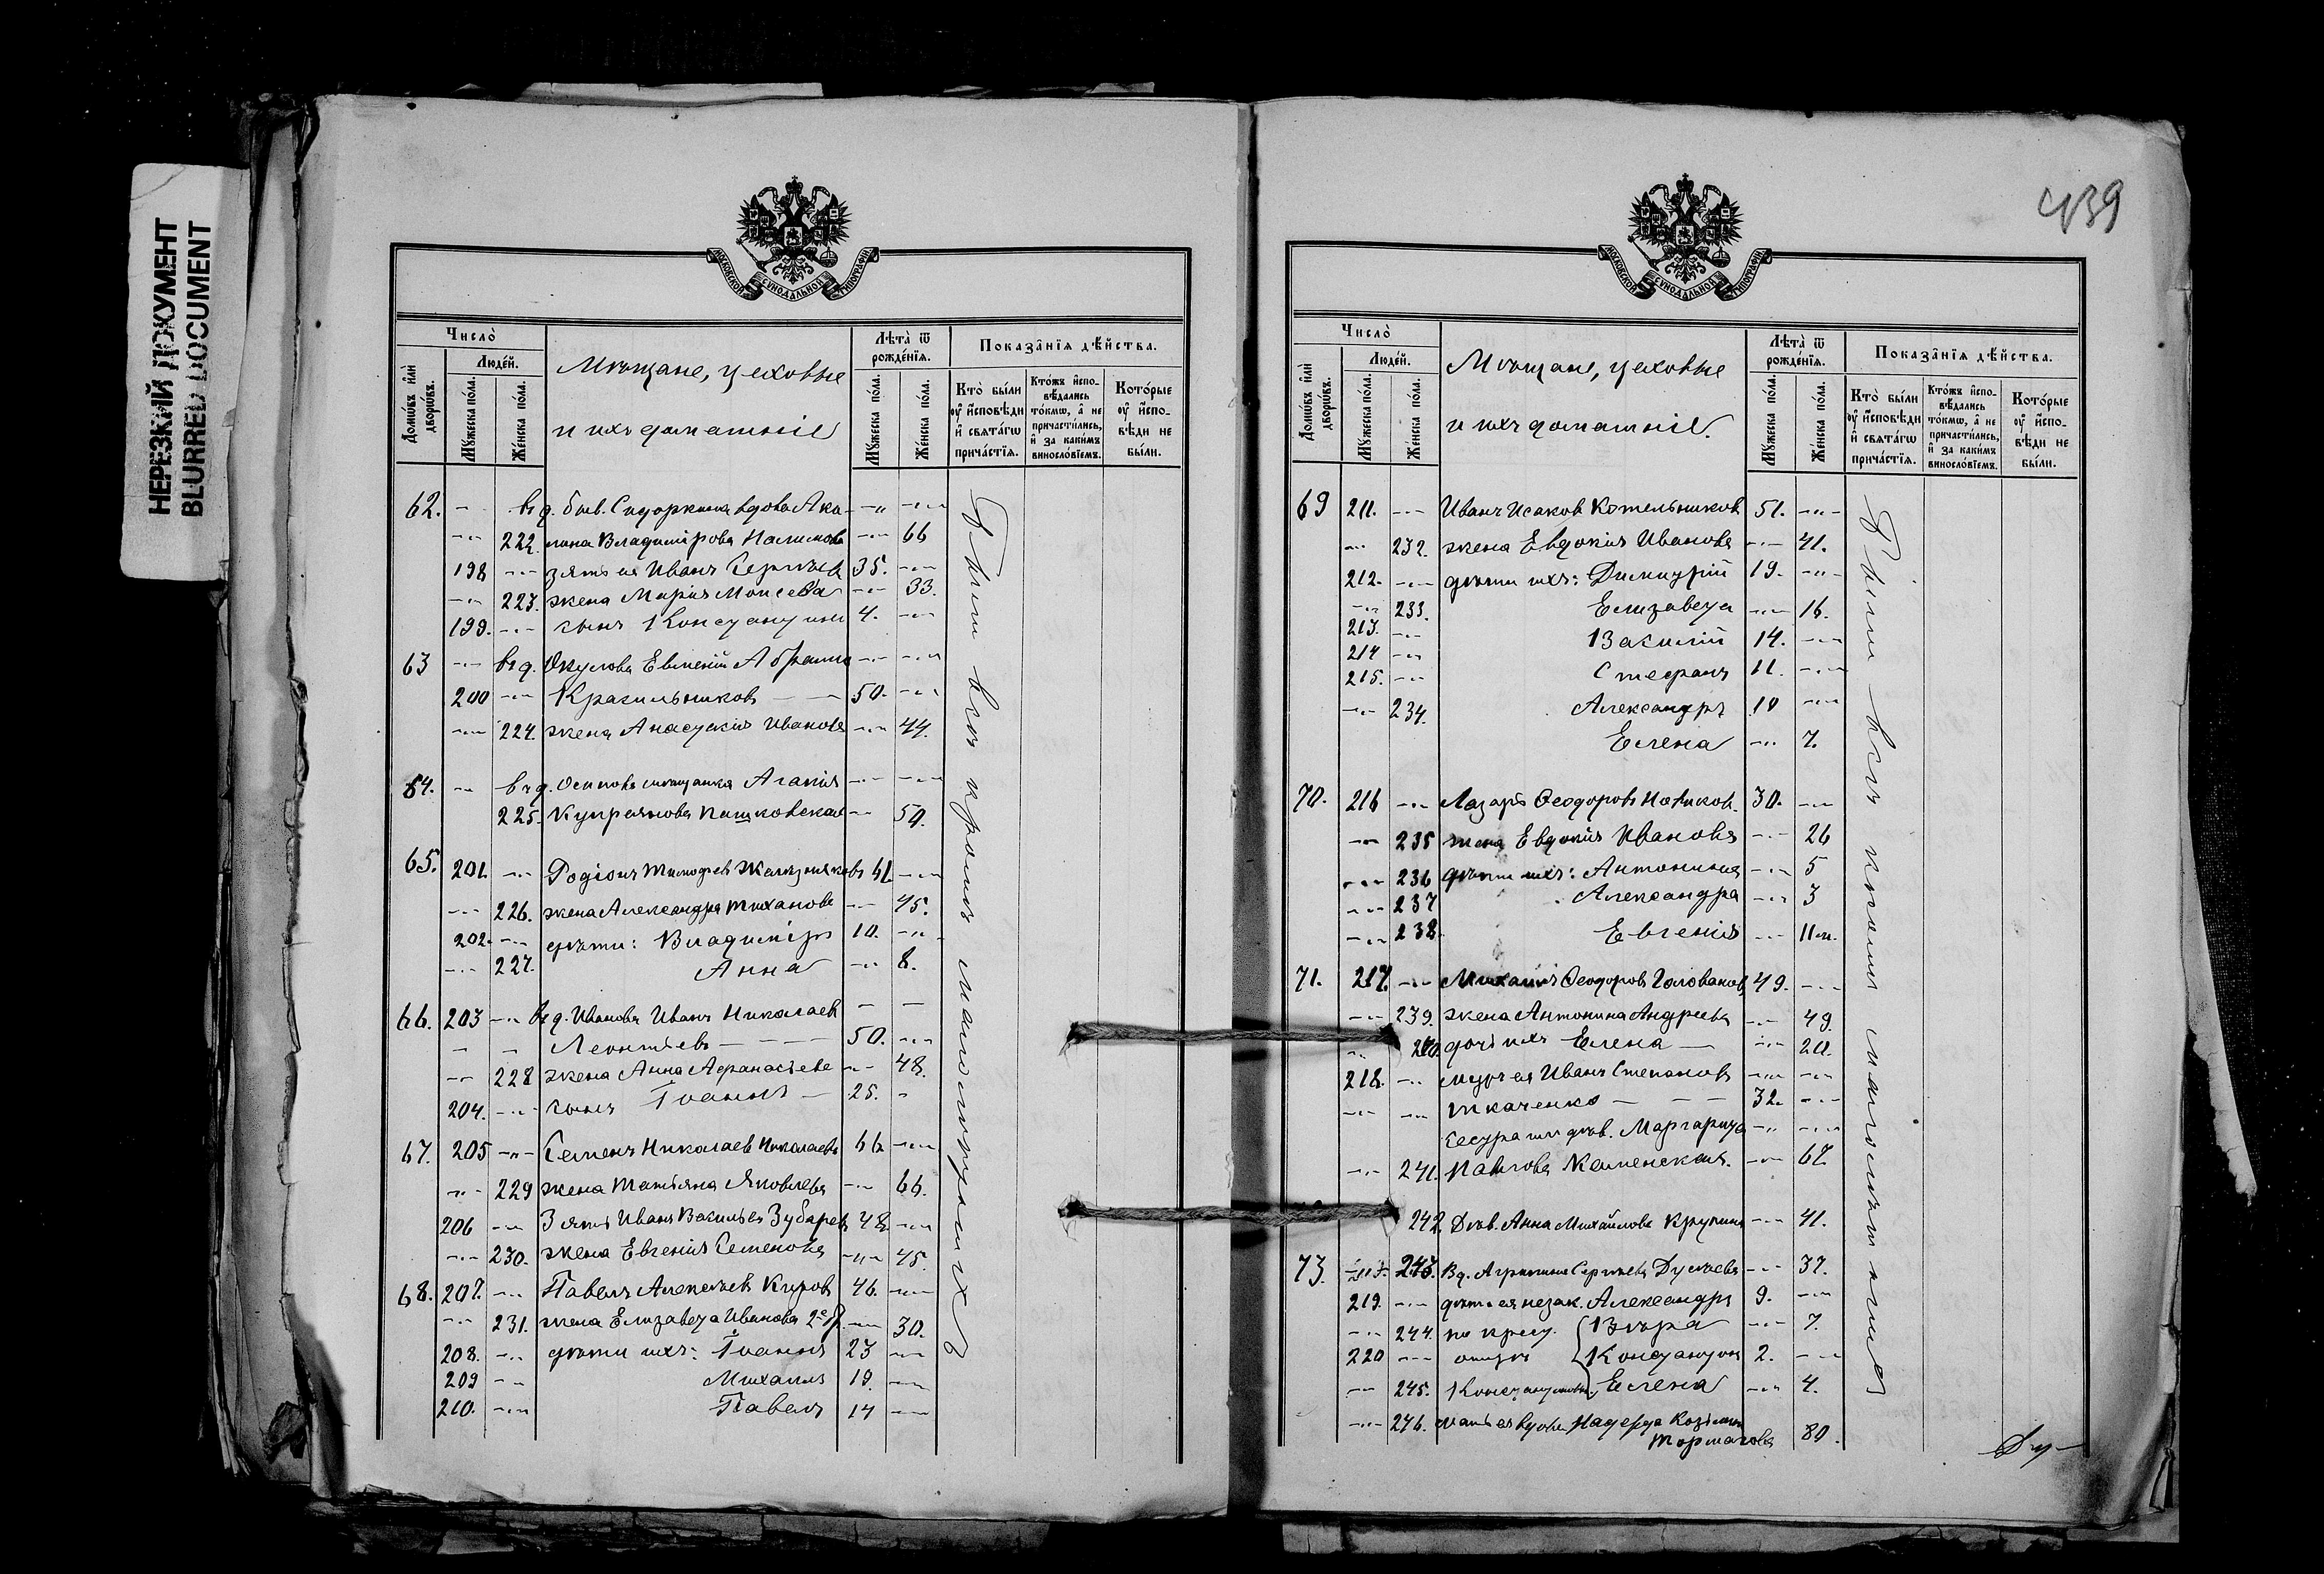 НЕРЕЗКИЙ ДОКУМЕНТ
BLURRED DOCUMENT
МОСКОВСКОЙ СѴНОДАЛЬНОЙ ТИПОГРАФІИ
Число̀
Людéй.
Домѡ́въ и҆лѝ дворѡ́въ.
Мꙋ́жеска по́ла.
Же́нска по́ла.
Мѣщане, цеховые
и ихъ домашніе
Лѣта̀ ѿ рожде́нїѧ.
Мꙋ́жеска по́ла.
Же́нска по́ла.
Показа̑нїѧ дѣ́йства.
Кто̀ бы́ли ᲂу҆ и҆сповѣди и҆ свѧта́гѡ прича́стїѧ.
Кто́жъ и҆спо-вѣ́дались то́кмѡ, а҆ не причасти́лись, и҆ за каки́мъ винословїемъ.
Кото́рые ᲂу҆ и҆спо-вѣди не бы́ли.
62. въ д. быв. Сидоркина вдова Аку-
222. лина Владимірова Налимова 66
198 зять ея Иванъ Сергѣев 35.
223. жена Марія Моисеева 33.
199. сынъ Константинъ 4.
63 въ д. Окулова Евменій Абрамов
200 Красильниковъ 50.
224. жена Анастасія Иванова 44.
64. въ д. Осипова мѣщанка Агапія
225. Купреянова Пашковская 59.
65. 201. Родіонъ Тимофеев Желѣзняковъ 61.
226. жена Александра Тиханова 45.
202. дѣти: Владиміръ 10.
227. Анна 8.
66. 203 въ д. Иванова Иванъ Николаев
Леонтьевъ 50.
228 жена Анна Афанасьева 48.
204. сынъ Іоаннъ 25.
67. 205 Семенъ Николаев Николаевъ 66
229 жена Татьяна Яковлева 66.
206 Зять Иванъ Васильев Зубарев 48
230. жена Евгенія Семенова 45.
68. 207. Павелъ Алексѣев Китов 46.
231. жена Елизавета Иванова 2го б. 30.
208. дѣти ихъ: Іоаннъ 23
209 Михаилъ 19.
210. Павелъ 14
Были всѣ кромѣ малолѣтнихъ
439
МОСКОВСКОЙ СѴНОДАЛЬНОЙ ТИПОГРАФІИ
Число̀
Людéй.
Домѡ́въ и҆лѝ дворѡ́въ.
Мꙋ́жеска по́ла.
Же́нска по́ла.
Мѣщане, цеховые
и ихъ домашніе.
Лѣта̀ ѿ рожде́нїѧ.
Мꙋ́жеска по́ла.
Же́нска по́ла.
Показа̑нїѧ дѣ́йства.
Кто̀ бы́ли ᲂу҆ и҆сповѣди и҆ свѧта́гѡ прича́стїѧ.
Кто́жъ и҆спо-вѣ́дались то́кмѡ, а҆ не причасти́лись, и҆ за каки́мъ винословїемъ.
Кото́рые ᲂу҆ и҆спо-вѣди не бы́ли.
69 211. Иванъ Исаков Котельников 51.
232. жена Евдокія Иванова 41.
212. дѣти ихъ: Димитрій 19.
233. Елизавета 16.
213. Василій 14.
214 Стефанъ 11.
215. Александръ 10
234. Елена 7.
70. 216 Лазарь Ѳеодоровъ Новиков. 30.
235 жена Евдокія Иванова 26
236 дѣти ихъ: Антонина 5
237 Александра 3
238. Евгенія 11 м.
71. 217. Михаилъ Ѳеодоровъ Головановъ 49.
239. жена Антонина Андреева 49.
240. дочь ихъ Елена 20.
218. мужъ ея Иванъ Степановъ
Ткаченко 32.
сестра дѣв. Маргарита
241. Павлова Каменская. 67
242 Дѣв. Анна Михайлова Крупина 41.
73. 243. Вд. Агрипина Сергѣева Дулаева 37.
219. дѣти ея незак. Александръ 9.
244. по крест. Вѣра 7.
220 отцу Константинъ 2.
245. Константиновы Елена 4.
246. мать ея вдова Надежда Козьмина
Тормазова 80.
Были всѣ кромѣ малолѣтнихъ